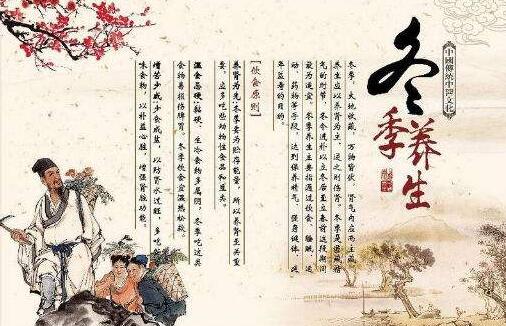 中國傳統中醫文化
冬季养生
冬季，天地收藏，万物皆伏，肾气内应而主藏，
养生应以养肾为主，逆之则伤肾。冬季是蓄藏阳
气的时节，冬令进补以立冬后至立春前这段期间
最为适宜。冬季养生主要指通过饮食、睡眠、运
动、药物等手段，达到保养精气、强身健体、延
年益寿的目的。
[饮食原则]
养肾为先:冬季要为脏存能量，所以养肾至关重
要，应多吃些动物性食品和豆类。
温食忌硬:黏硬、生冷食物多属阴，冬季吃这类
食物易损伤脾胃。冬季饮食宜温热松软。
增苦少咸:少食咸盐，以防肾水过旺；多吃些苦
味食物，以补益心脏，增强肾脏功能。